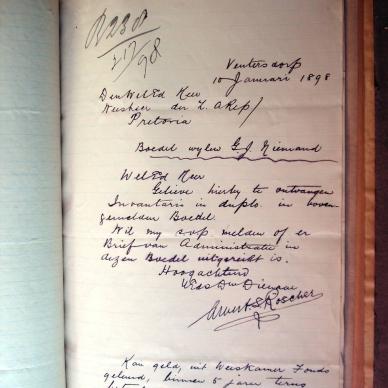 R238
17/98
Ventersdorp
10 Januari 1898
Den WelEd Heer
Weesheer der Z. A Rep/
Pretoria
Boedel wylen G J Niemand
WelEd Heer
Gelieve hierby te ontvangen
Inventaris in duplo. in boven
gemelden Boedel.
Wil my svp melden of er
Brief van Administratie in
dezen Boedel uitgereikt is.
Hoogachtend
UEds Dw Dienaar
S. Roscher
Kan geld, uit Weeskamer Fonds
geleend, binnen 5 jaren terug